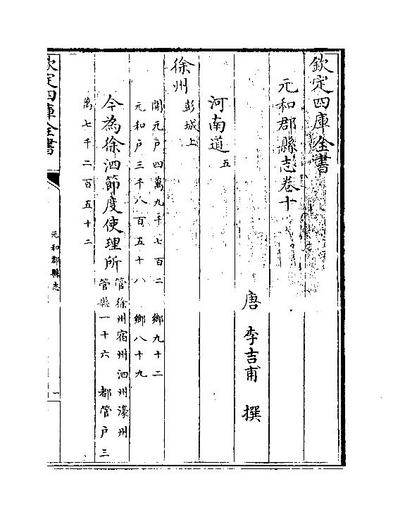 欽定四庫全書
元和郡縣志卷十
唐 李吉甫 撰
河南道五
徐州彭城上
開元户四萬九千七百二 鄉九十二
元和户三千八百五十八 鄉八十九
今為徐泗節度使理所管徐州宿州泗州濠州
管縣一十六 都管户三
萬七千二百五十二
欽定四庫全書
元和郡縣志
一